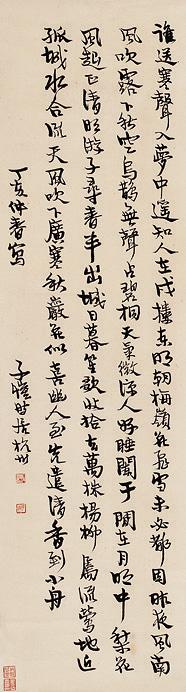 誰送寒聲入夢中遥知人在戍樓東明朝梅嶺花飛雪未必都因昨夜風南
風吹露下秋空烏鵲無聲占碧桐天氣微涼人好睡闌干閒在月明中梨花
風起正清明游子尋春半出城日暮笙歌收拾去萬株楊柳屬流鶯地近
孤城水合流天風吹下廣寒秋巖花似喜幽人至先遣清香到小舟
丁亥仲春寫
子愷時居杭州